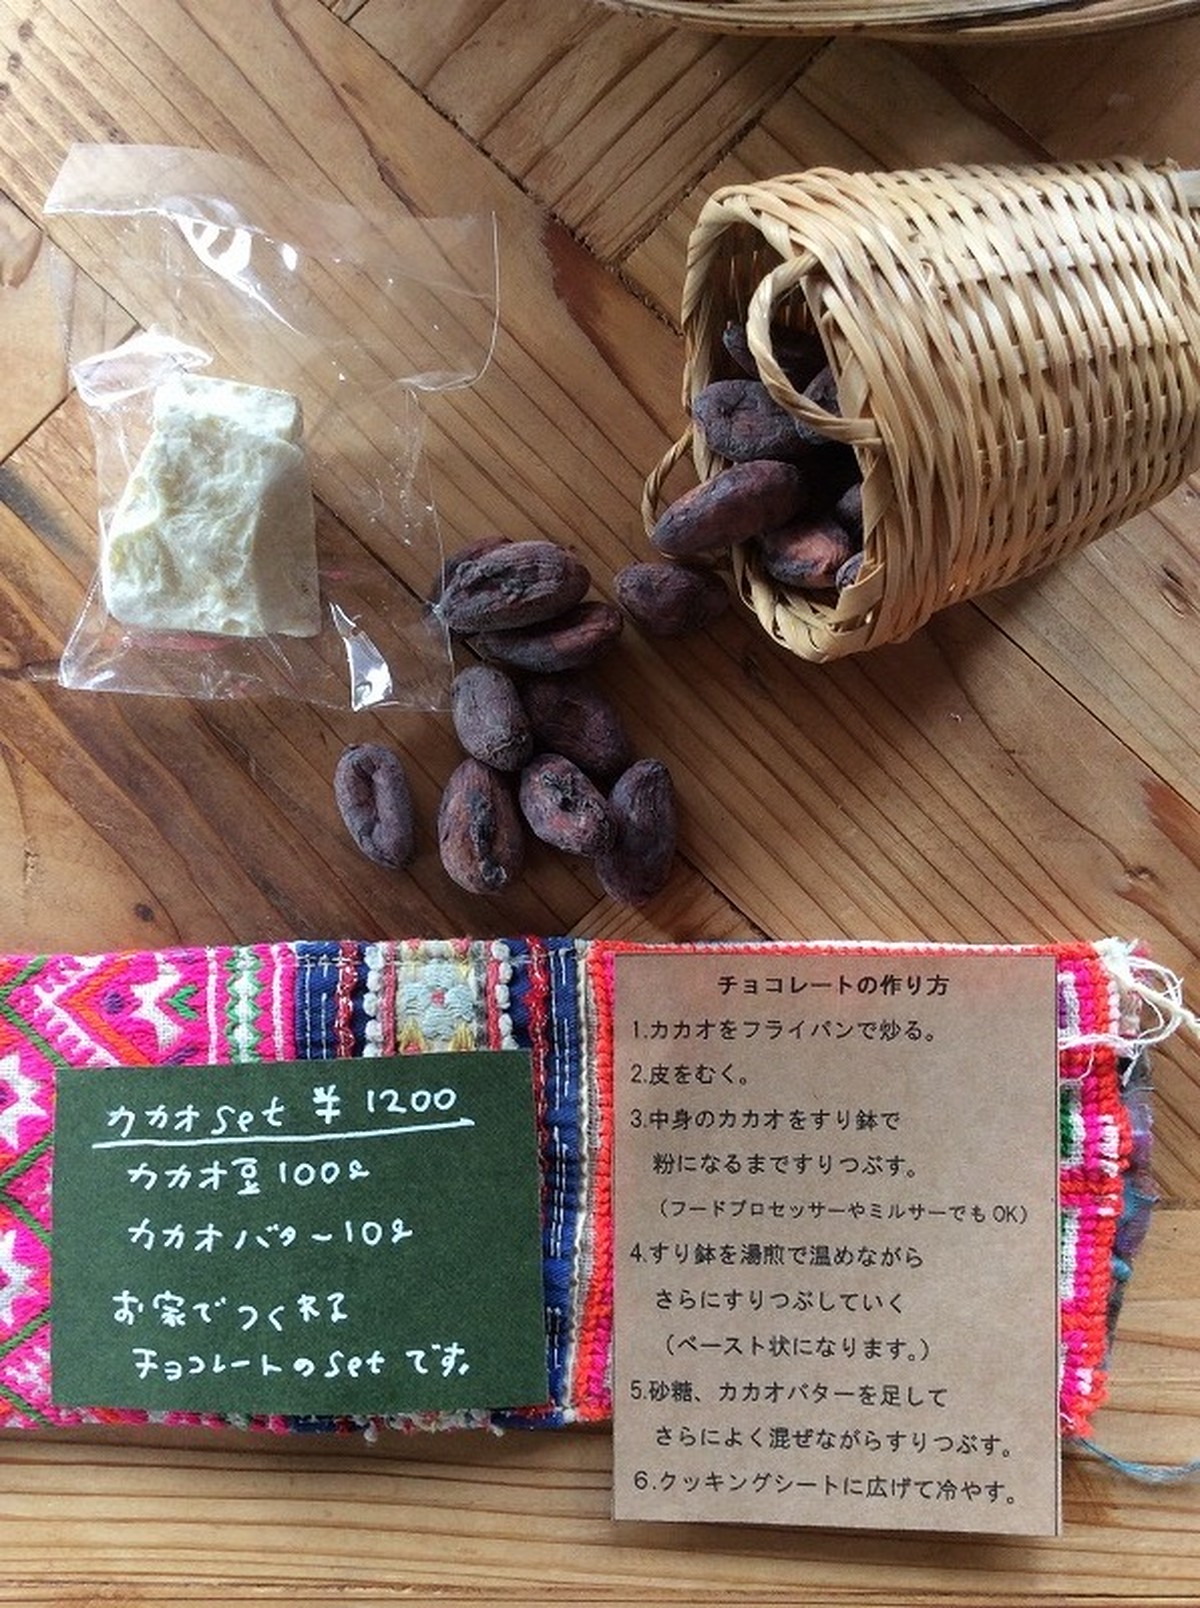 カカオset ¥1200
カカオ豆100g
カカオバター10g
お家でつくれる
チョコレートのsetです。
チョコレートの作り方
1.カカオをフライパンで炒る。
2.皮をむく。
3.中身のカカオをすり鉢で
粉になるまですりつぶす。
（フードプロセッサーやミルサーでもOK）
4.すり鉢を湯煎で温めながら
さらにすりつぶしていく
（ペースト状になります。）
5.砂糖、カカオバターを足して
さらによく混ぜながらすりつぶす。
6.クッキングシートに広げて冷やす。